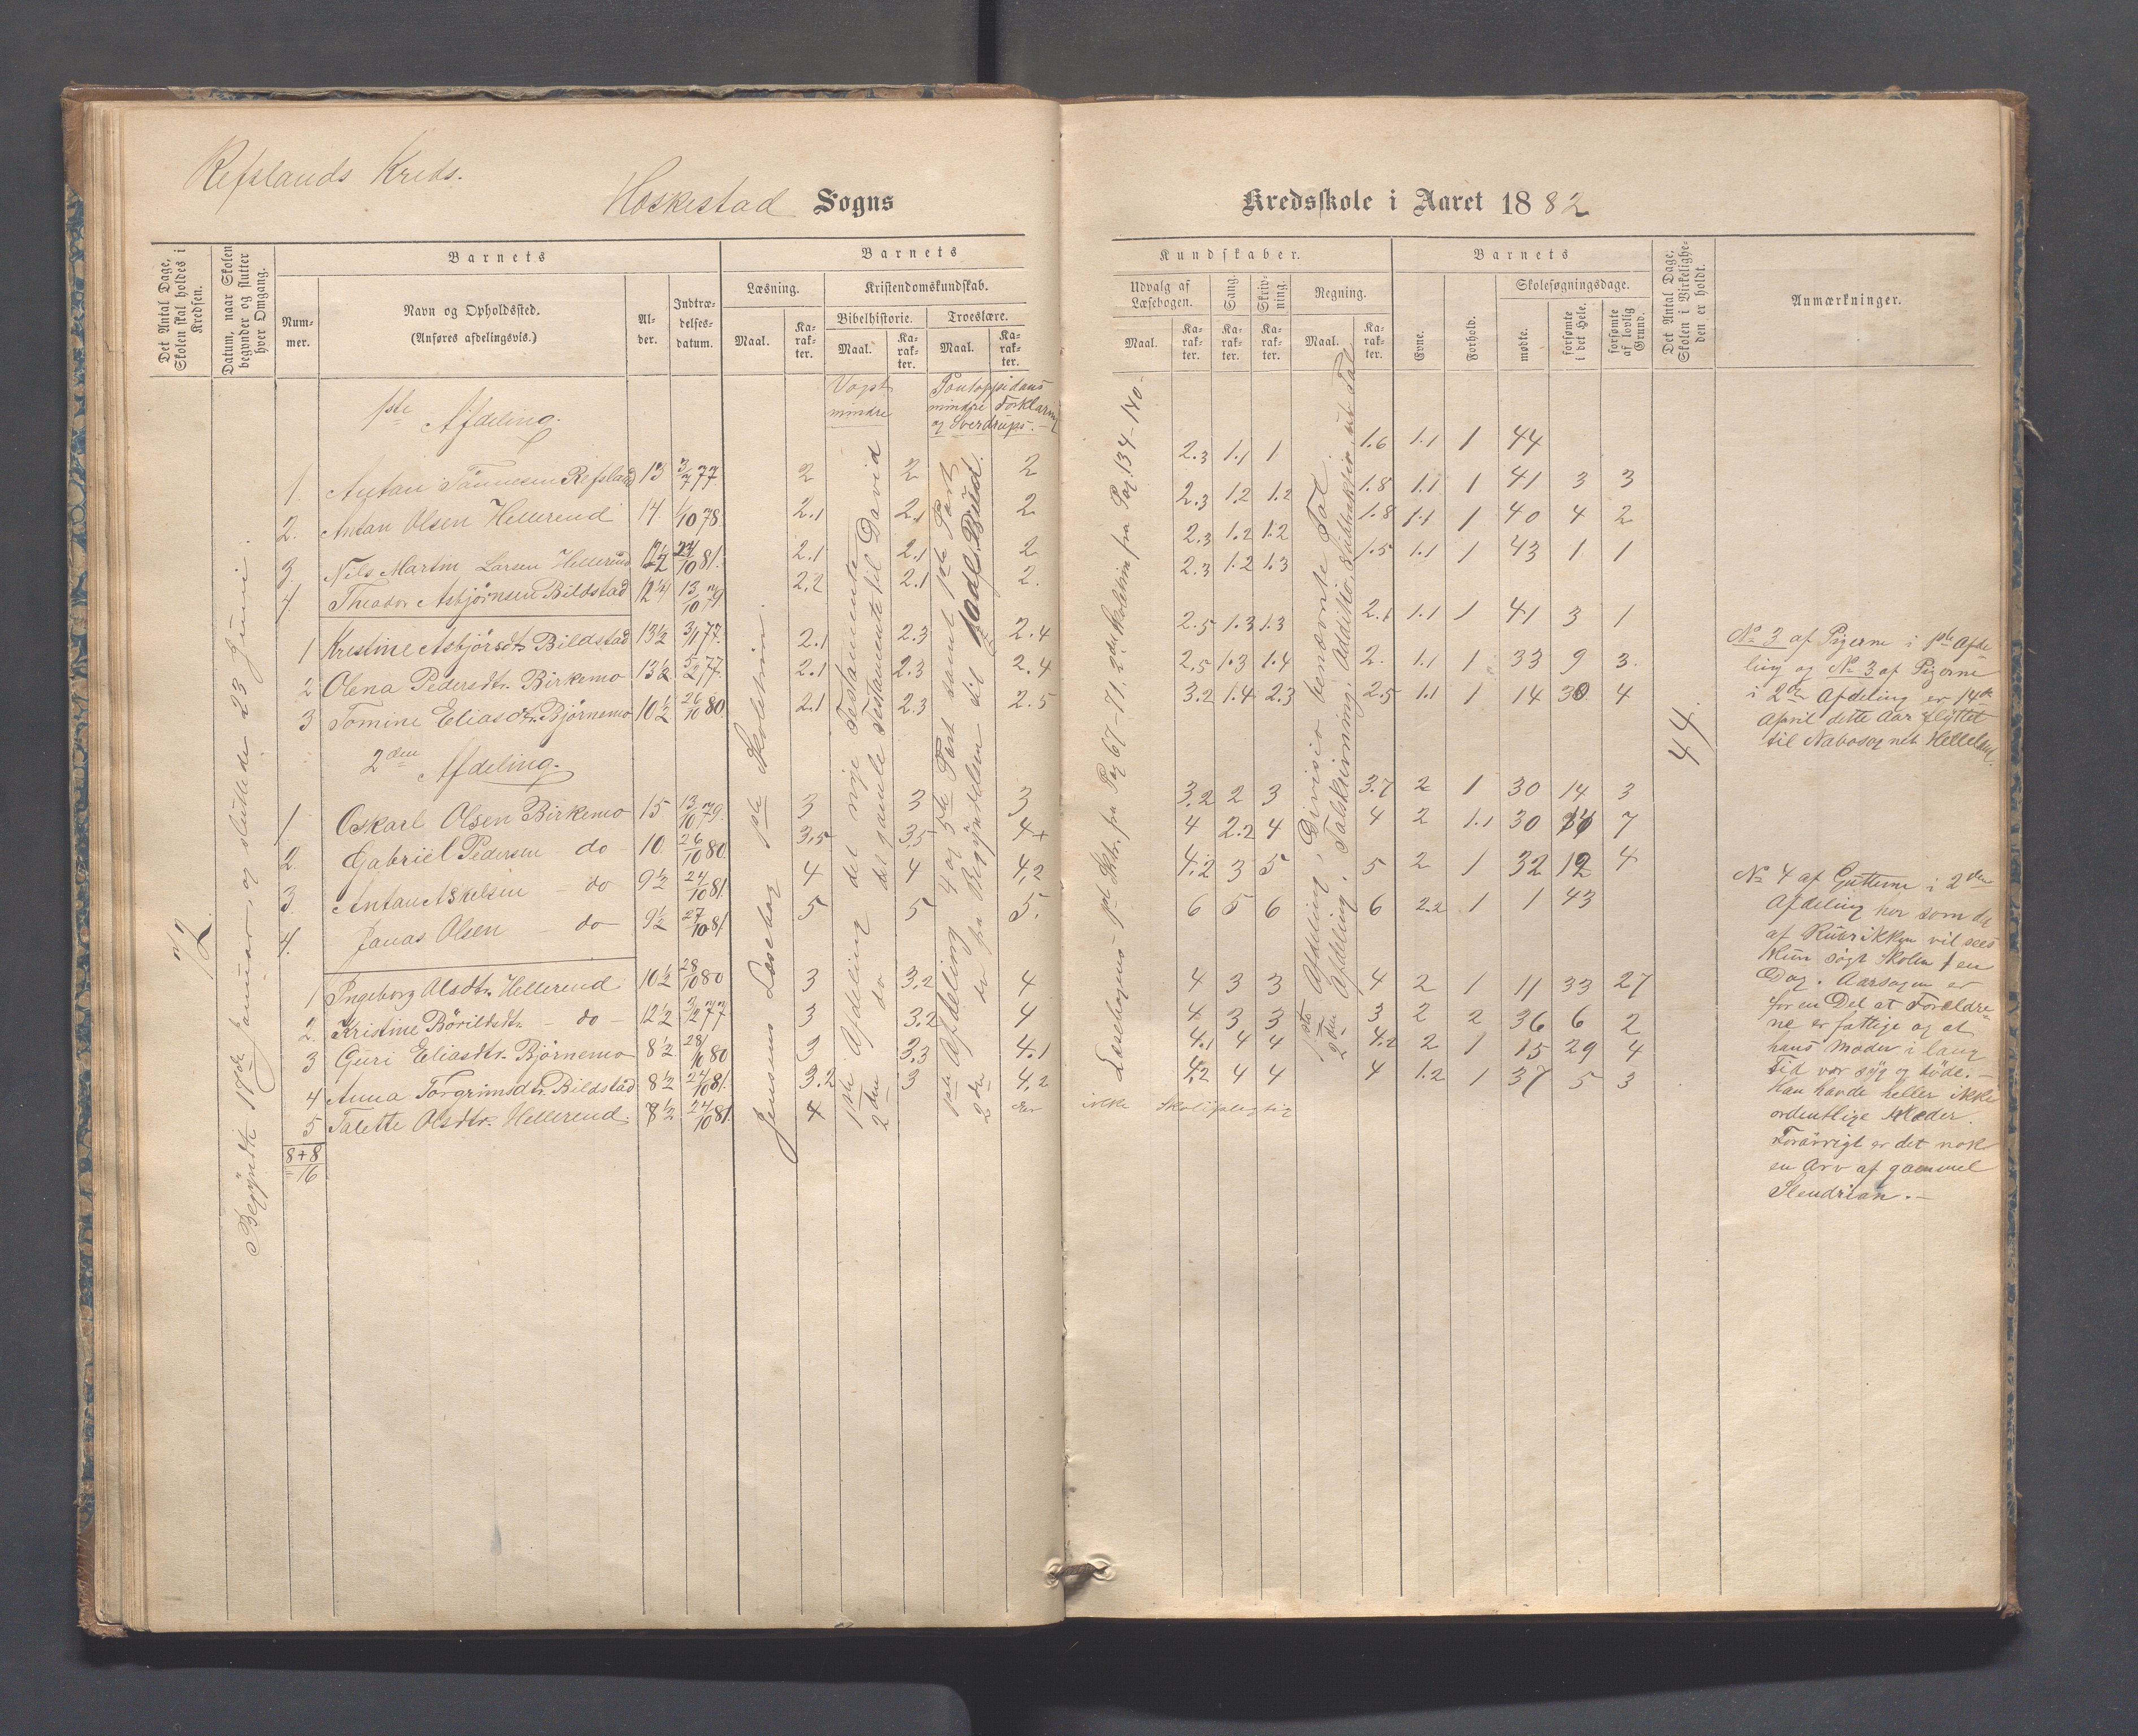 Refslands Kreds.
Heskestad Sogns
Kredsskole i Aaret 1882
Det Antal Dage, Skolen skal holdes i Kredsen.
Datum, naar Skolen begynder og slutter hver Omgang.
Barnets
Num-mer.
Navn og Opholdssted.
(Anføres afdelingsvis.)
Al-der.
Indtræ-delses-datum.
Barnets
Læsning.
Kristendomskundskab.
Bibelhistorie.
Troeslære.
Maal.
Ka-rak-ter.
Maal.
Ka-rak-ter.
Maal.
Ka-rak-ter.
Kundskaber.
Udvalg af Læsebogen.
Sang.
Skriv-ning.
Regning.
Maal.
Ka-rak-ter.
Ka-rak-ter.
Ka-rak-ter.
Maal.
Ka-rak-ter.
Barnets
Evne.
Forhold.
Skolesøgningsdage.
mødte.
forsømte i det Hele.
forsømte af lovlig Grund.
Det Antal Dage, Skolen i Virkelighe-den er holdt.
Anmærkninger.
72.
Begyndte 17de Januar, og sluttede 23 Juni.
1ste Afdeling.
Vogts mindre
Pontoppidans mindre Forklaring og Sverdrups.
1. Antan Tønnesen Refsland 13 3/7 77. 2 2 2 2.3 1.1 1 1.6 1.1 1 44
2. Antan Olsen Hellerend 14. 1/10 78. 2.1 2.1 2 2.3 1.2 1.2 1.8 1.1 1 41 3 3
3. Nils Martin Larsen Hellerend 12 1/2 24/10 81. 2.1 2.1 2 2.3 1.2 1.2 1.8 1.1 1 40 4 2
4. Theodor Asbjørnsen Bildstad 12 1/4 13/10 79 2.2 2.1 2. 2.3 1.2 1.3 1.5 1.1 1 43 1 1
1 Kristine Asbjørsdt. Bildstad 13 1/2 3/1 77. 2.1 2.3 2.4 2.5 1.3 1.3 2.1 1.1 1 41 3 1
2 Olena Pedersdtr. Birkemo 13 1/2 5/2 77. 2.1 2.3 2.4 2.5 1.3 1.4 2. 1.1 1 33 9 3.
3 Tomine Eliasdtr. Bjørnemo 10 1/2 26/10 80. 2.1 2.3 2.5 3.2 1.4 2.3 2.5 1.1 1 14 30 4
2den Afdeling.
1 Oskarl Olsen Birkemo 15 13/10 79. 3 3 3 3.2 2 3 3.7 2 1 30 14 3
2. Gabriel Pedersen do 10. 26/10 80. 3,5 3,5 4+ 4 2.2 4 4 2 1.1 30 14 7
3. Antan Askelsen do 9 1/2 24/10 81. 4 4 4,2 4.2 3 5 5 2 1 32 12 4
4. Janas Olsen do 9 1/2 27/10 81 5 5 5. 6 5 6 6 2.2 1 1 43
1 Ingeborg Olsdtr. Hellerend 10 1/2 28/10 80 3 3.2 4 4 3 3 4 2 1 11 33 27
2. Kristine Børildsdt. do 12 1/2 3/12 77. 3 3.2 4 4 3 3 3 2 2 36 6 2
3 Guri Eliasdtr. Bjørnemo 8 1/2 28/10 80 3 3.3 4.1 4.1 4 4 4.2 2 1 15 29 4
4 Anna Torgrimsdtr. Bildstad 8 1/2 24/10 81. 3.2 3 4,2 4,2 4 4 4 1.2 1 37 5 3
5 Talette Olsdtr. Hellerend. 8 1/2 24/10 81. 4 er ikke skolepligtig
8+8
=16
Jensens Læsebog 1ste Skoletrin.
1ste Afdeling det nye Testamente
2den do det gamle Testamente til David
1ste Afdeling 4 og 5te Part samt 1ste Part
2den do fra Begyndelsen til 4de Bud.
Læsebogens 1ste Sktr. fra Pag 67-71. 2det Skoletrin fra Pag. 134-140.
1ste Afdeling, Divisio benævnte Tal.
2den Afdeling. Talskrivning. Addisio, Subtraksjo,
44.
No 3 af Pigerne i 1ste Afde-
ling og No 3 af Pigerne
i 2den Afdeling er 14de
April dette Aar flyttet
til Nabosognet Helleland.
No 4 af Gutterne i 2den
Afdeling har som du
af Rubrikken vil sees
kun søgt Skolen 1 en
Dag. Aarsagen er
for en Del at Forældre-
ne er fattige og at
hans Moder i lang
Tid var syg og døde. —
Han havde heller ikke
ordentlige Klæder.
Forøvrigt er det nok
en Arv af gammel
Slendrian. —